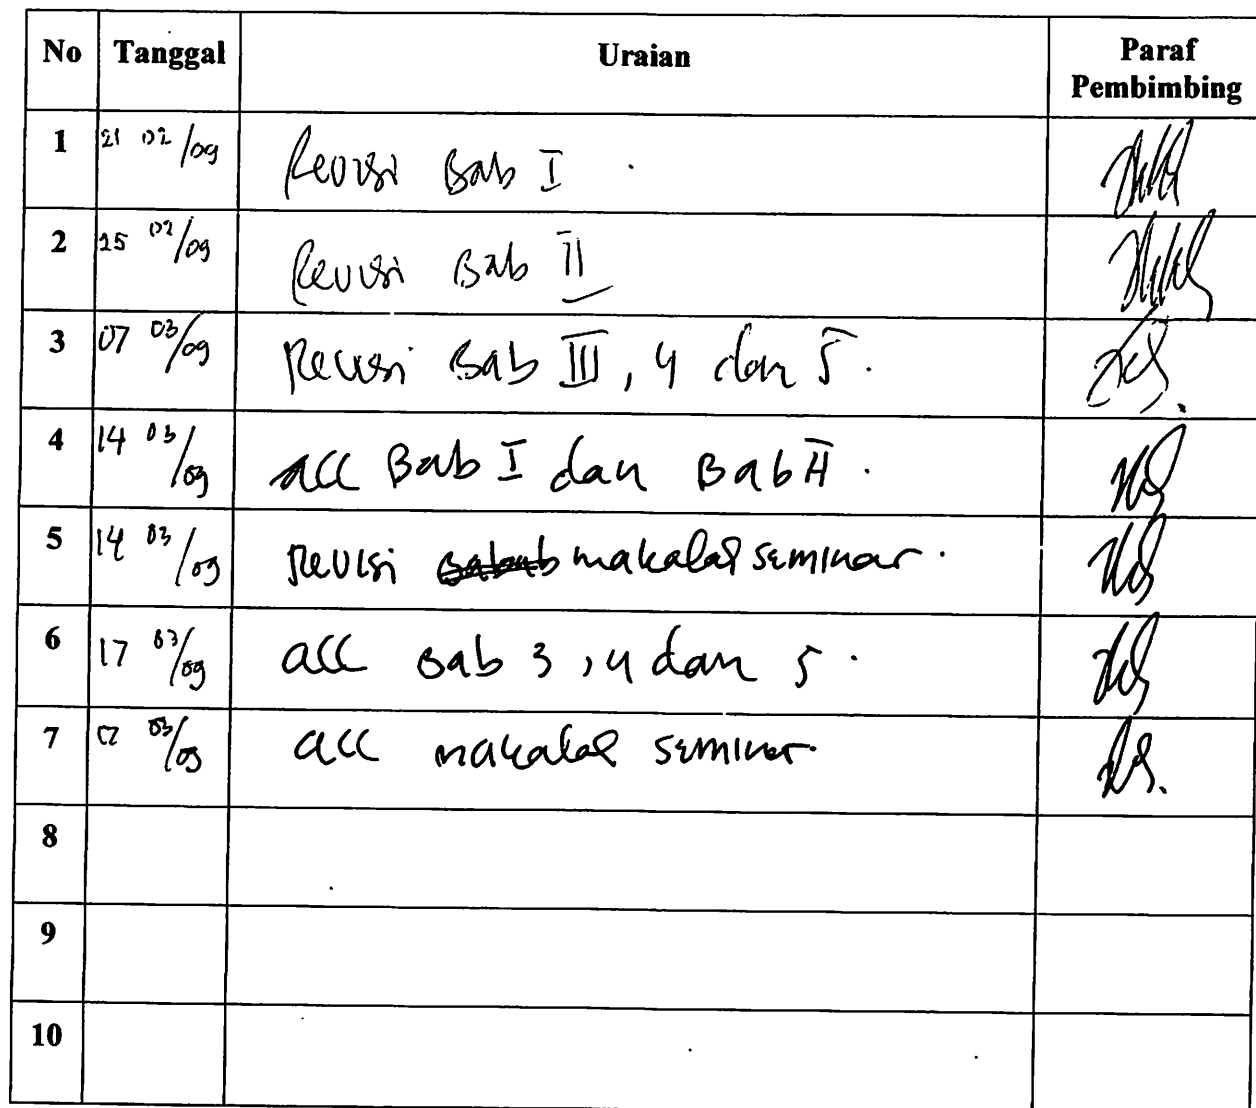 No Tanggal Uraian Paraf Pembimbing
1 21 02/09 Revisi Bab I .
2 25 02/09 Revisi Bab II
3 07 03/09 Revisi Bab III, 4 dan 5.
4 14 03/09 acc Bab I dan Bab II.
5 14 03/09 Revisi makalah seminar.
6 17 03/09 acc Bab 3, 4 dan 5.
7 03/09 acc makalah seminar.
8
9
10